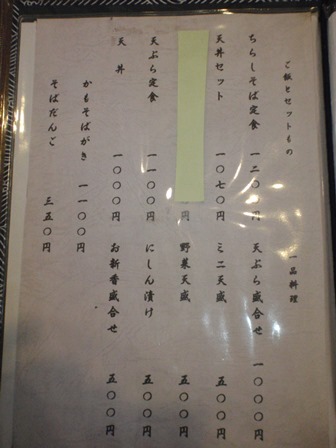 ご飯とセットもの
ちらしそば定食 一二〇〇円
天丼セット 一〇七〇円
円
天ぷら定食 一一〇〇円
天丼 一〇〇〇円
かもそばがき 一一〇〇円
そばだんご 三五〇円
一品料理
天ぷら盛合せ 一〇〇〇円
ミニ天盛 五〇〇円
野菜天盛 五〇〇円
にしん漬け 五〇〇円
お新香盛合せ 五〇〇円